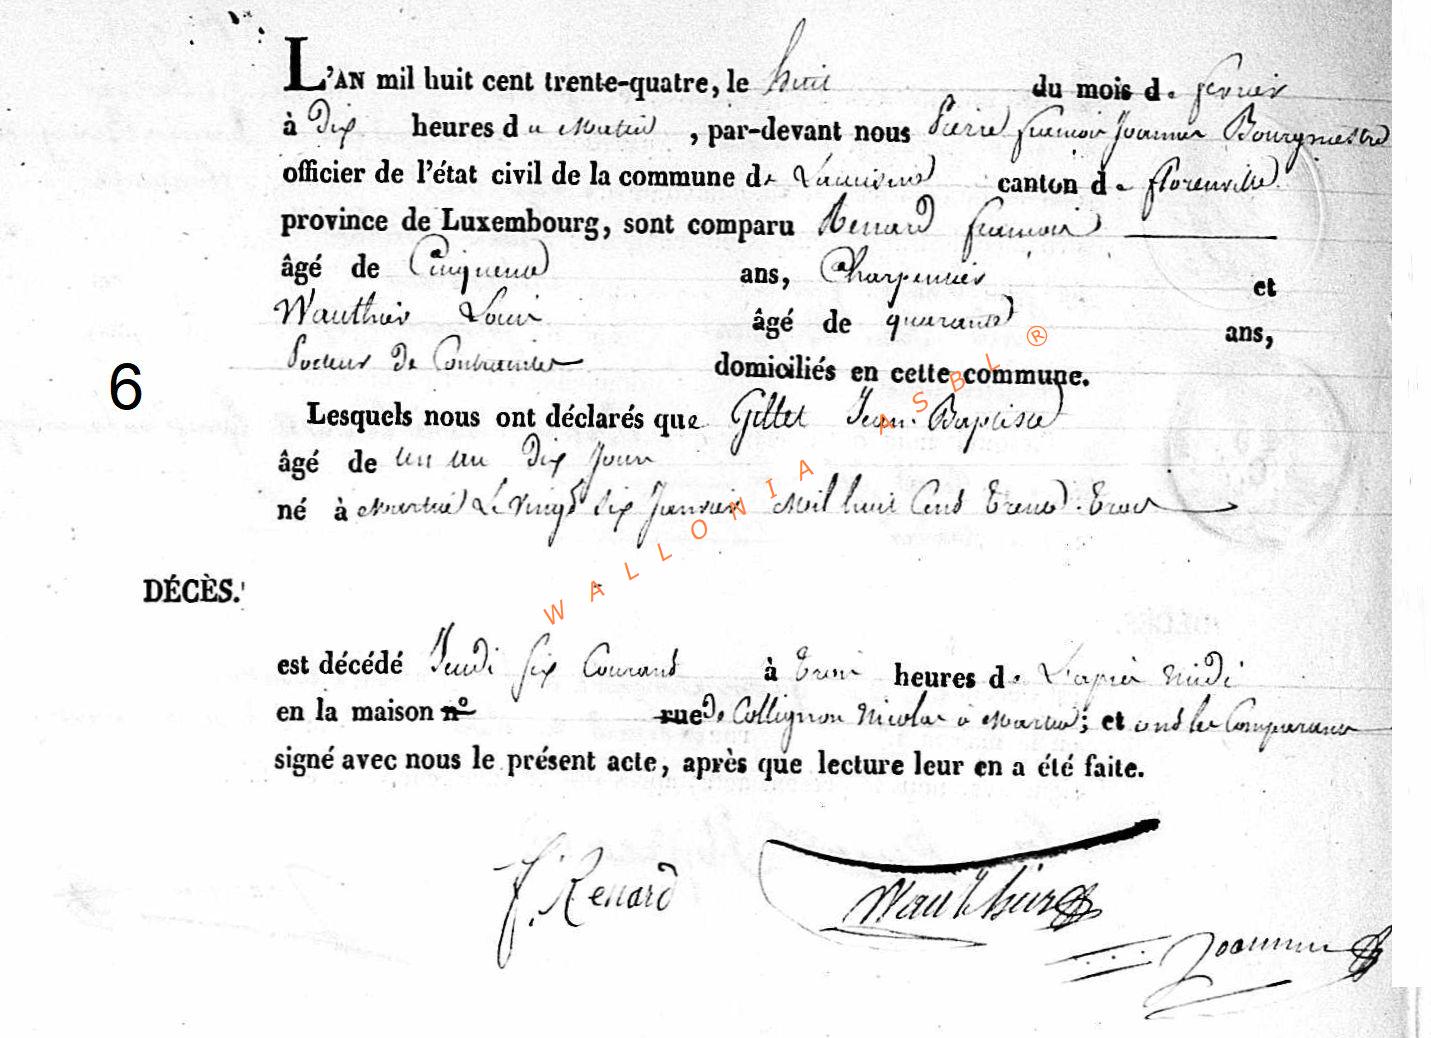 L'AN mil huit cent trente-quatre, le huit du mois de fevrier
à Dix heures du Matin, par-devant nous Pierre francois Joannes Bourgmestre
officier de l'état civil de la commune de canton de florenville
province de Luxembourg, sont comparu Renard francois
âgé de Cinquente ans, Charpentier et
Wauthier Louis âgé de quarante ans,
Porteur de Contraintes domiciliés en cette commune.
6
Lesquels nous ont déclarés que Gillet Jean-Baptiste
âgé de un an Dix Jours
né à Martué Le vingt six Janvier Mil huit Cent Trente-Trois
DÉCÈS.
est décédé Jeudi six Courant à Trois heures de L'après midi
en la maison n° rue de Collignon Nicolas à Martué; et ont les Comparants
signé avec nous le présent acte, après que lecture leur en a été faite.
WALLONIA ASBL ®
f. Renard Wauthier
Joannes